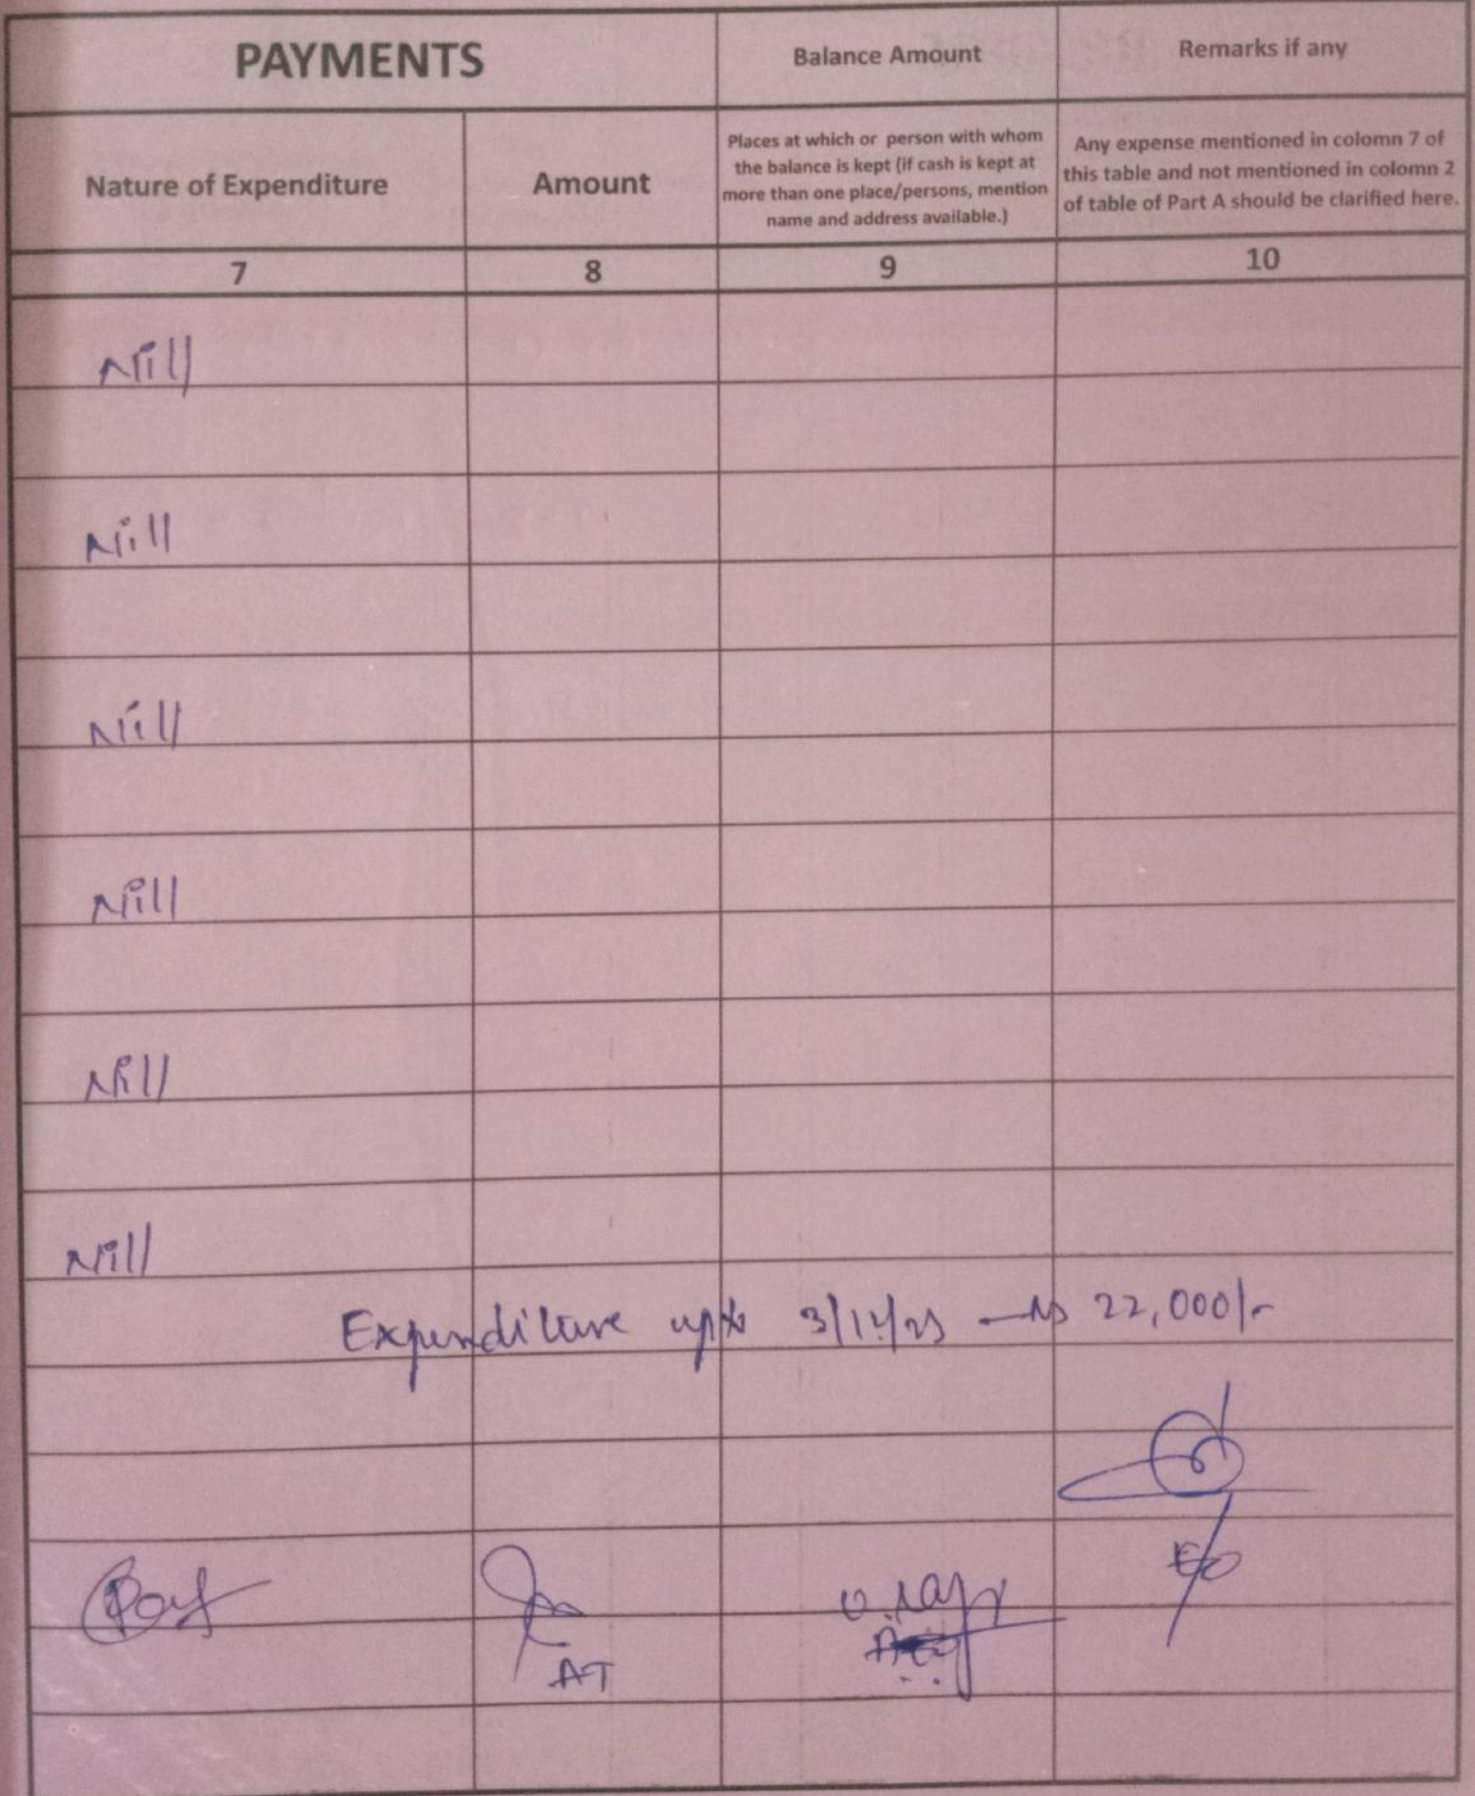 PAYMENTS
Balance Amount
Remarks if any
Nature of Expenditure
Amount
Places at which or person with whom
the balance is kept (if cash is kept at
more than one place/persons, mention
name and address available.)
Any expense mentioned in colomn 7 of
this table and not mentioned in colomn 2
of table of Part A should be clarified here.
7
8
9
10
Nill
Nill
Nill
Nill
Nill
Nill
Expenditure upto 22,000/-
AT